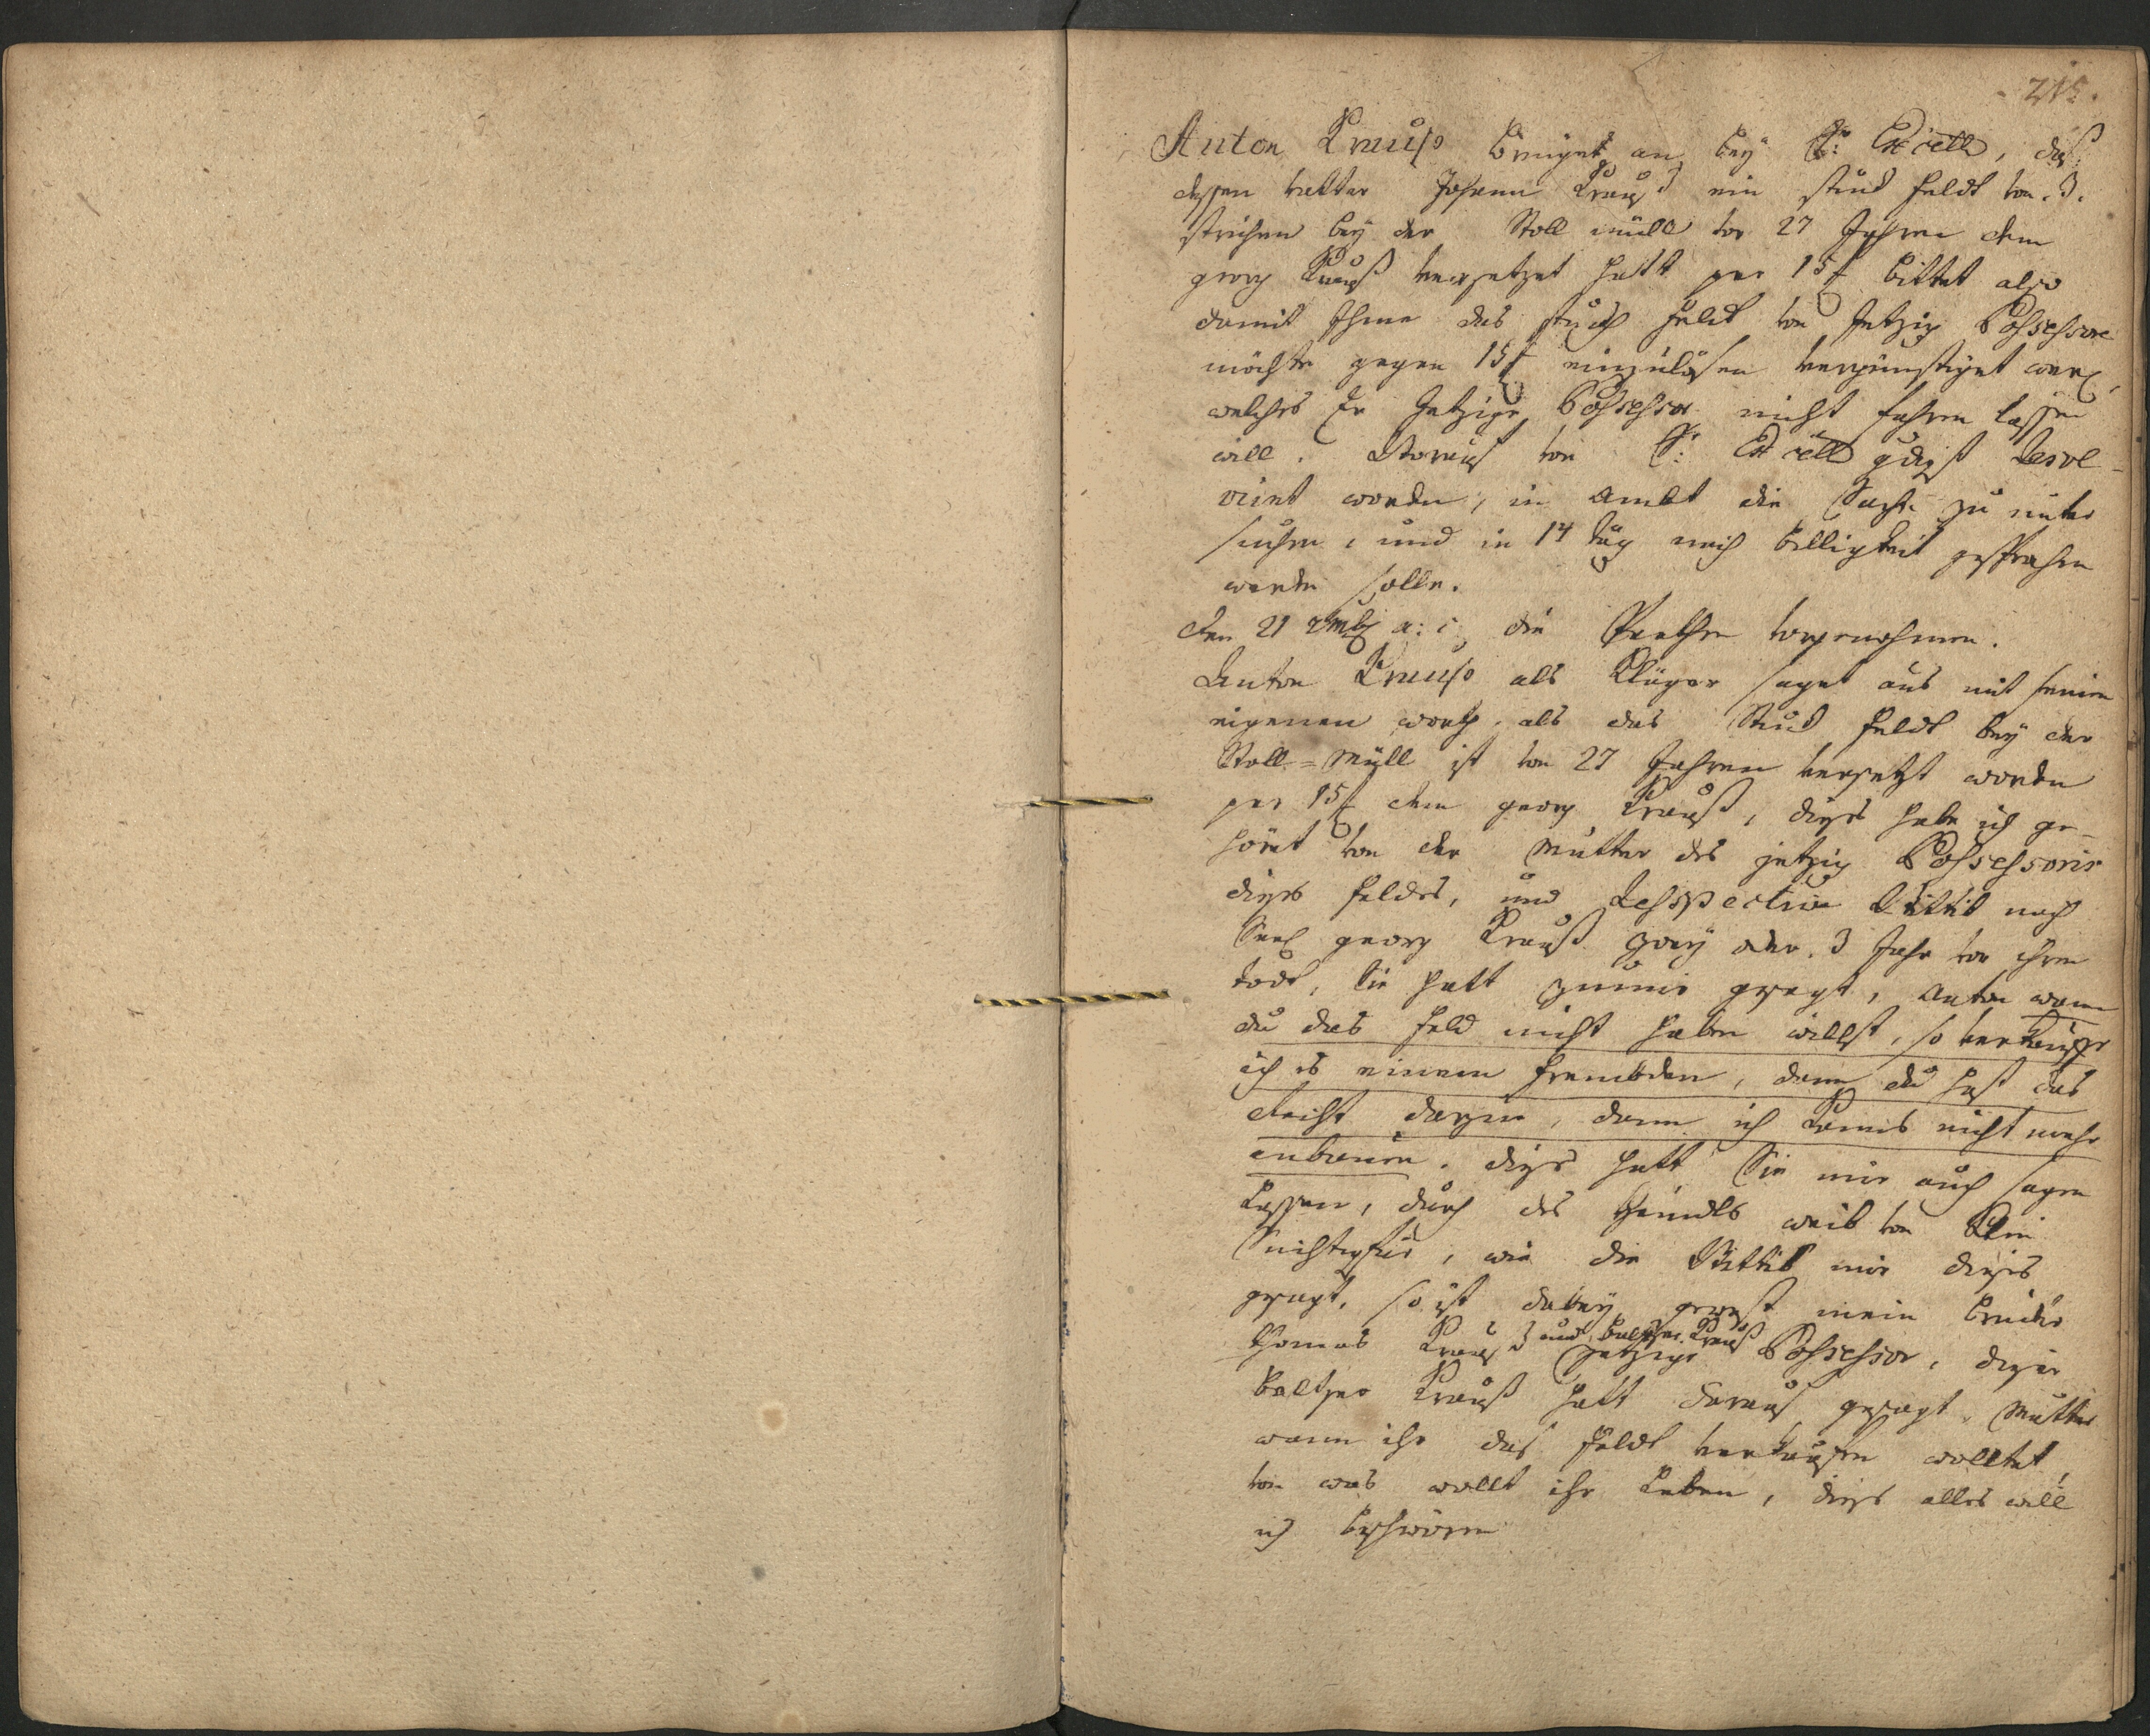 215.
Anton Krauß bringet an bey S: Excell, daß
dessen vatter Johann Krauß ein stuck feldt von .3.
strichen bey der Stoll müll vor 27 Jahren dem
georg Krauß versetzet hatt per 15 f bittet also
damit Ihme das stuckh feldt von Jetzig Possessore
möchte gegen 15 f einzulösen vergünstiget werd,
welches Er Jetzige Possessor nicht fahren lassen
will. Worauf von S: Excell gdigst Resol-
virt worden, in ambt die Sache zu unter
suchen, und in 14 täg nach billigkeit gesprochen
werden solle.
den 21 xmb a: c. die Sache vorgenohmen.
Anton Krauß als Kläger saget aus mit seinen
eigenen worth, als das Stuck feldt bey der
Stoll=Müll ist vor 27 Jahren versetzt worden
per 15 f dem georg Krauß, dieses habe ich ge-
höret von der Mutter des jetzig Possessoris
dieses feldes, und Respective Wittib nach
Seel georg Krauß zwey oder .3 Jahr vor ihren
todt, Sie hatt zu mir gesagt, Anton wann
du das feld nicht haben willst, so verkauffe
ich es einem frembden, dann du hast das
Recht darzu, dann ich kanns nicht mehr
anbauen. dieses hatt Sie mir auch sagen
lassen, durch des weib von Klein
, wie die Wittib mir dieses
gesagt, so ist dabey gewest mein bruder
und baltzer Krauß
thomas Krauß Jetziger Possessor, dieser
baltzer Krauß hatt darauf gesagt, Mutter
wann ihr das feldt verkaufen wolltet,
von was wollt ihr leben, dieses alles will
ich beschwören